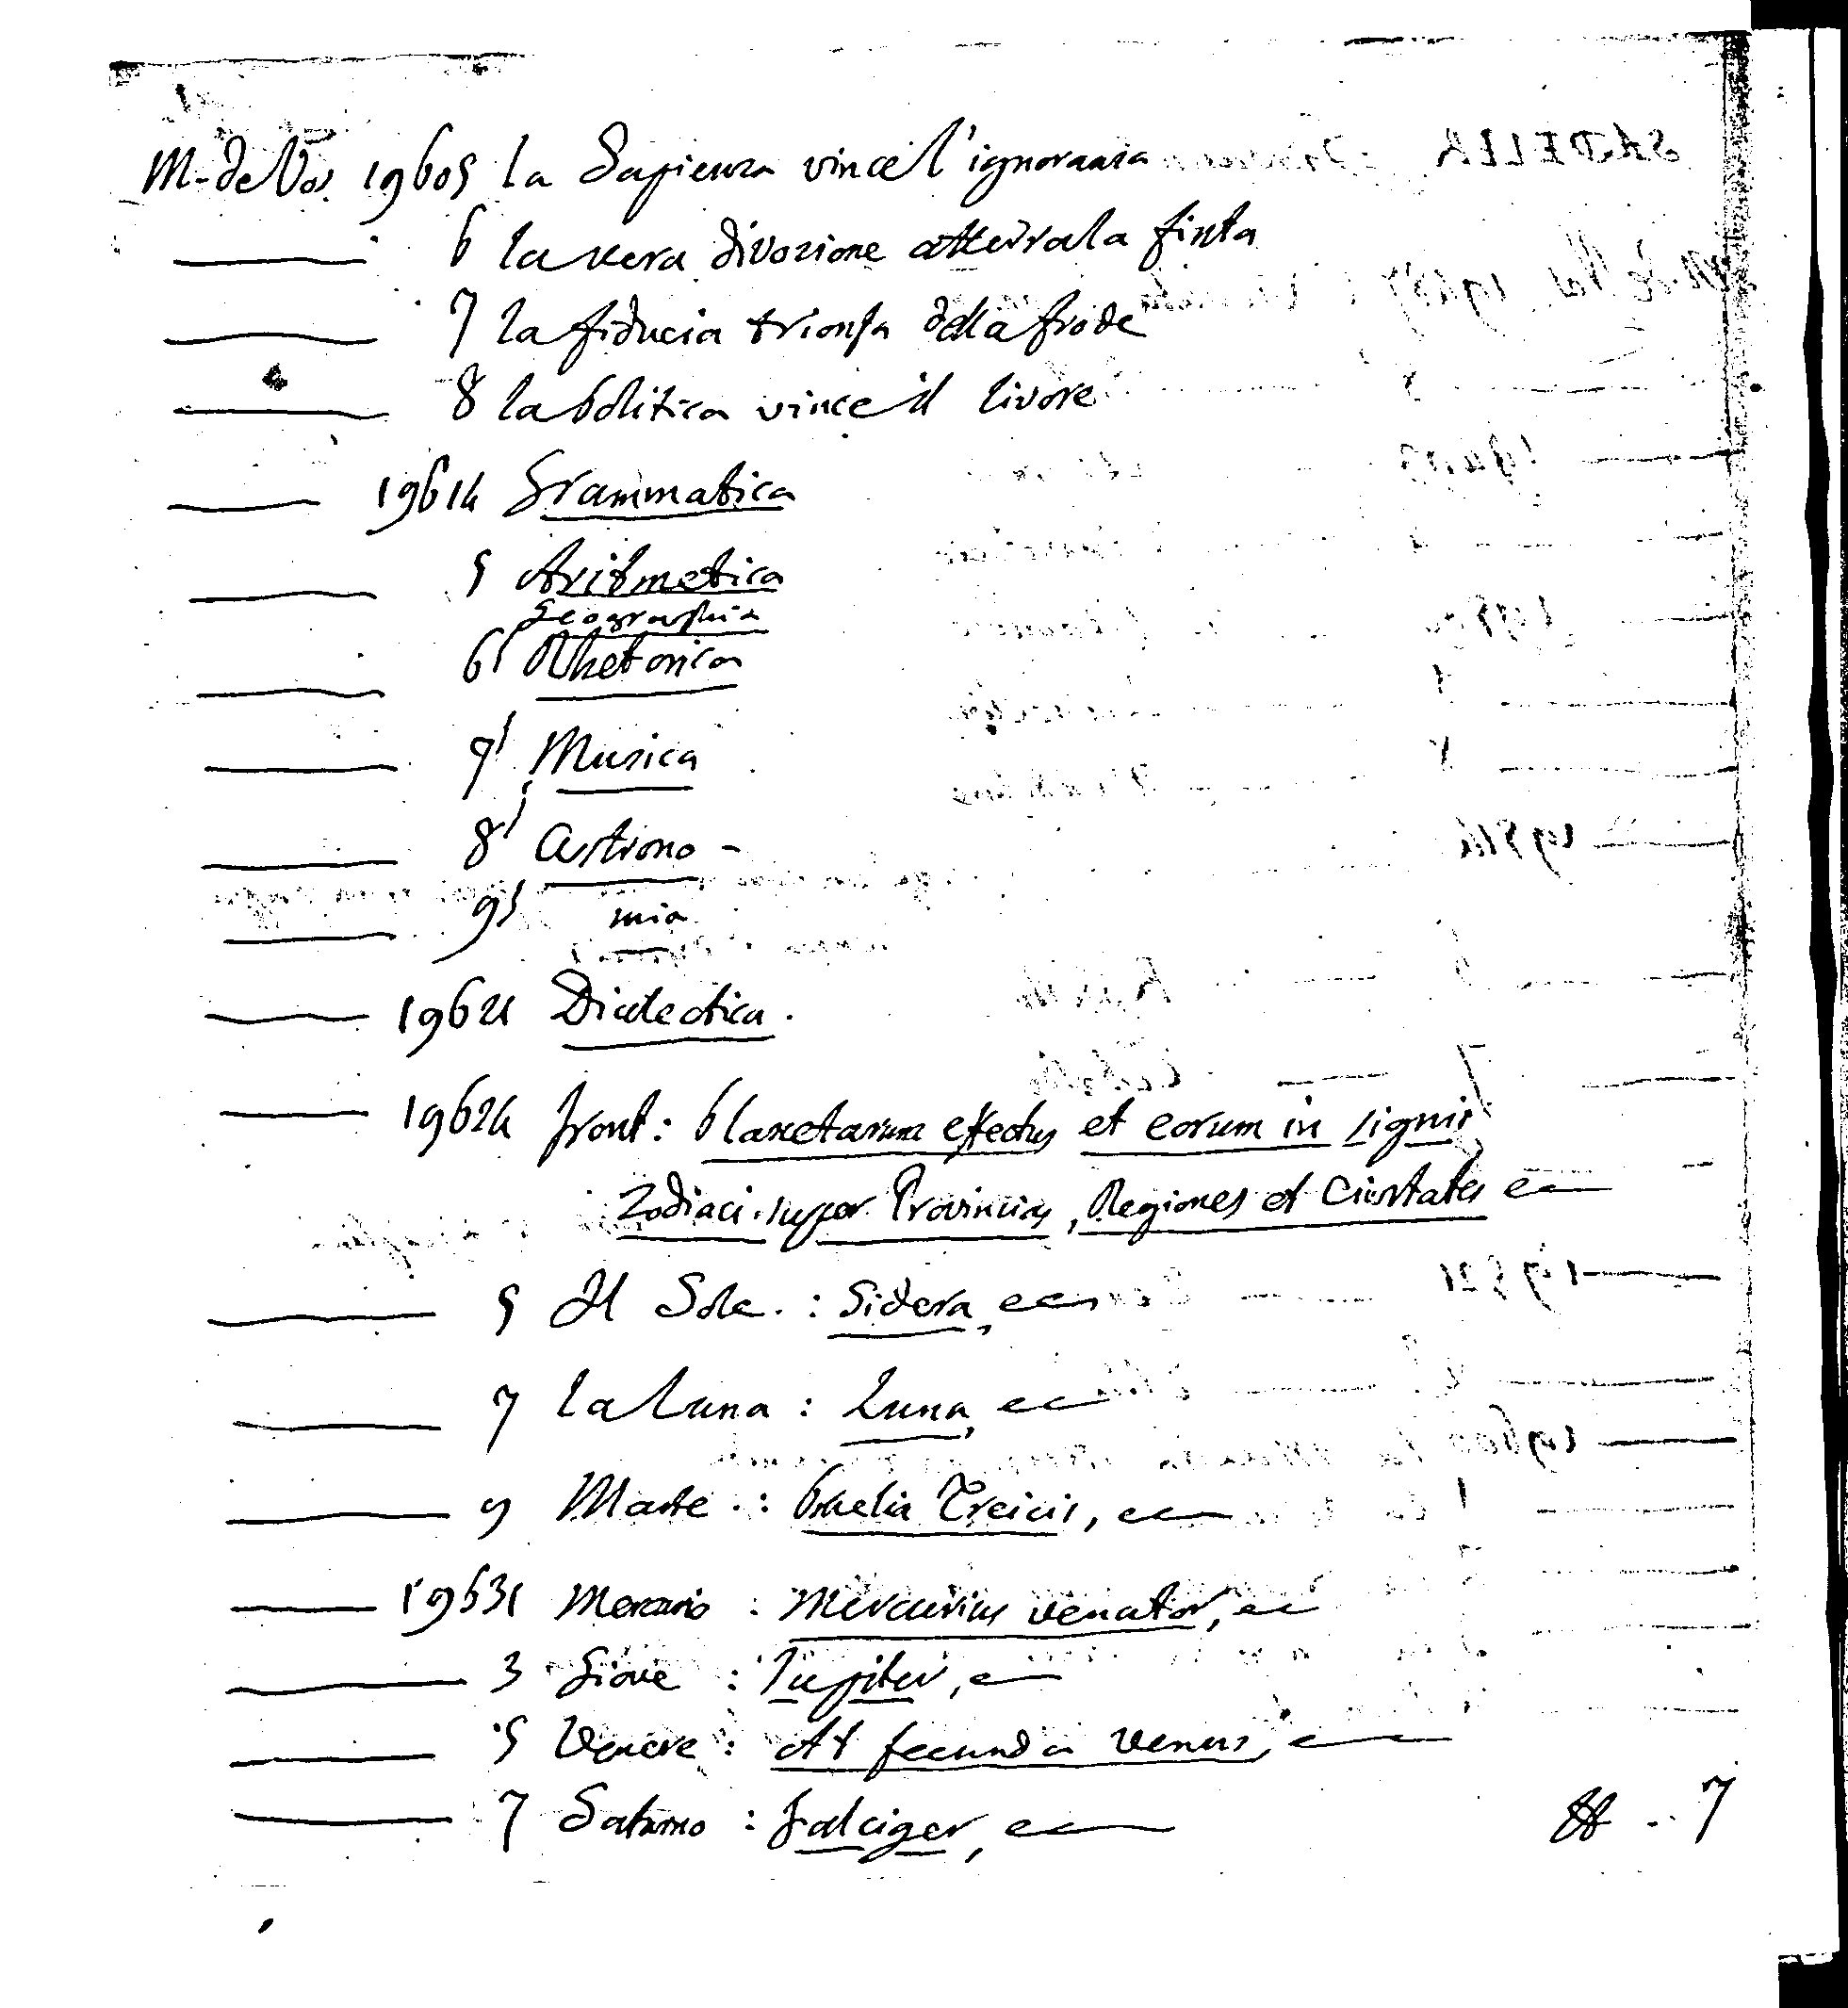 M. de Vos 19605 la Sapienza vince l'ignoranza
——— 6 la vera divozione atterra la finta
——— 7 la fiducia trionfa della frode
——— 8 la politica vince il livore
——— 19614 Grammatica
——— 5 Aritmetica
Geographia
——— 6 Rhetorica
——— 7 Musica
——— 8 Astrono-
——— 9 mia
——— 19621 Dialectica.
——— 19624 front: Planetarum effectus et eorum in signis
Zodiaci super Provincias, Regiones et Civitates
——— 5 Il Sole : Sidera,
——— 7 la Luna : Luna,
——— 9 Marte : Praelia Treicis,
——— 19631 Mercurio : Mercurius venator,
——— 3 Giove : Iupiter,
——— 5 Venere : At fecunda Venus,
——— 7 Saturno : Falciger,
7